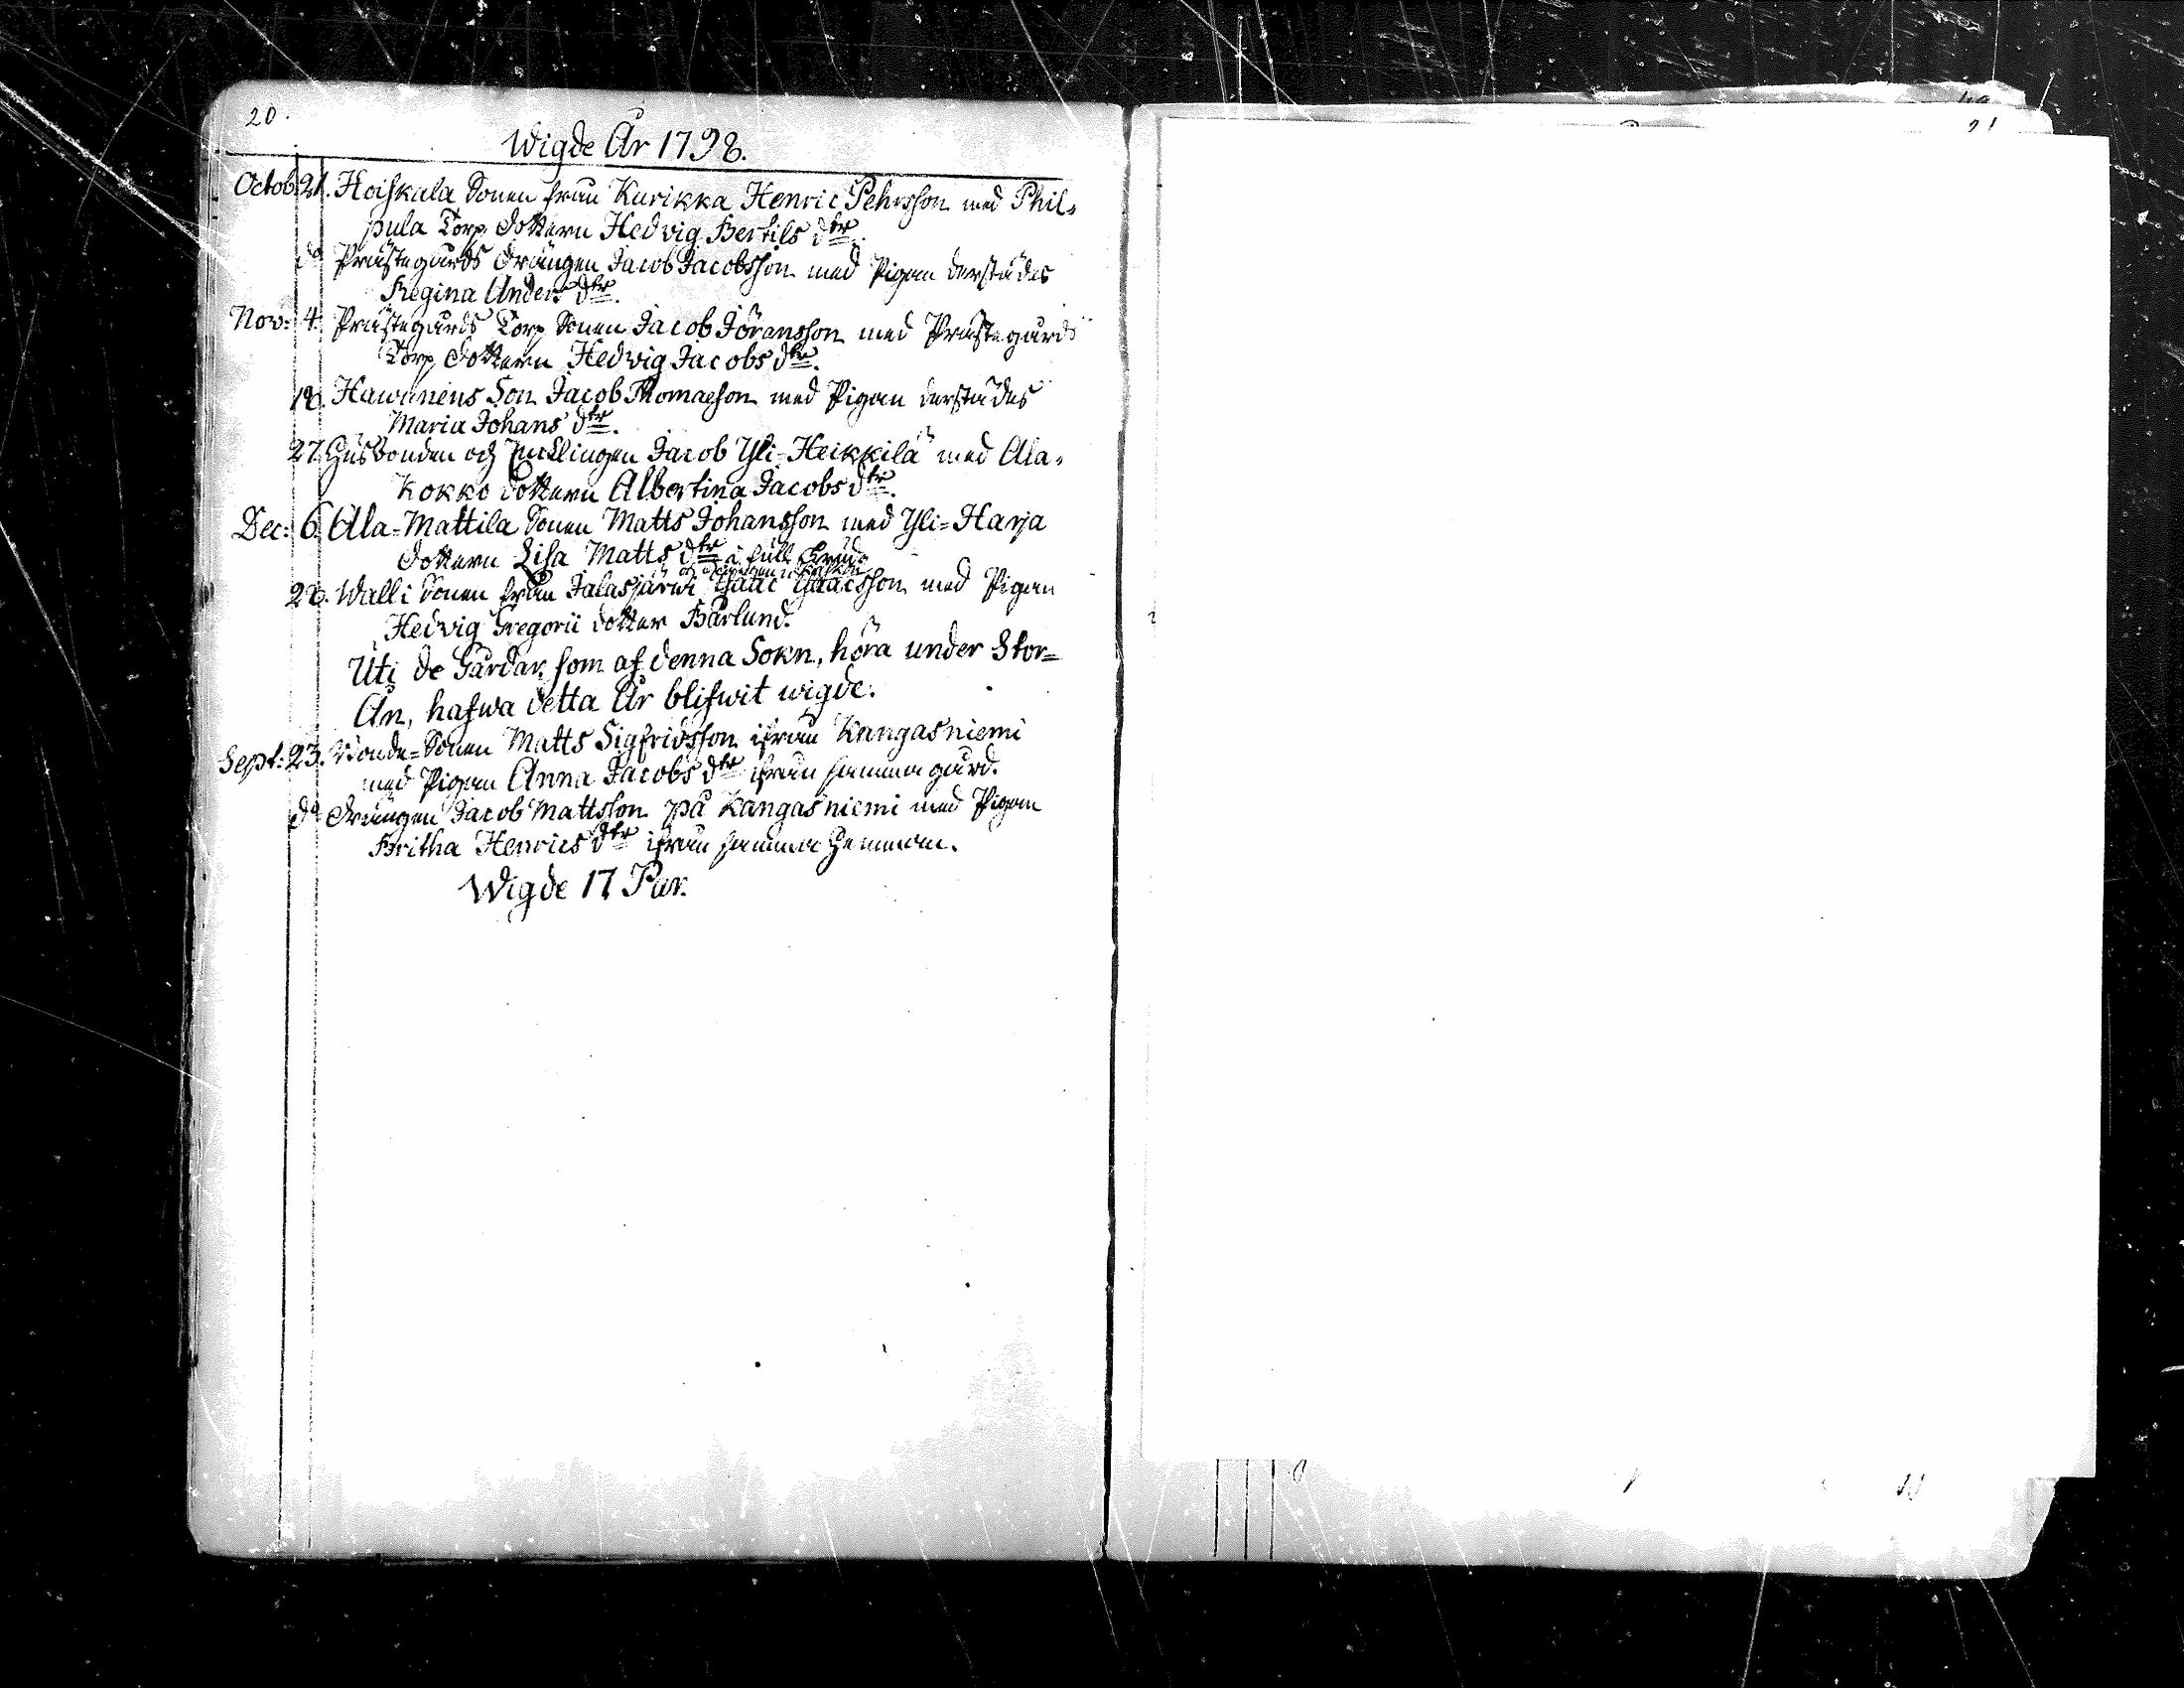 20.
Wigde År 1798.
Octob: 21. Hoiskala Sonen från Kurikka Henric Pehrsson med Phil=
pula Torp dottern Hedvig Bertils dtr.
do Prästegårds drängen Jacob Jacobsson med Pigan derstädes
Regina Anders dtr.
Nov: 4. Prästegårds Torp Sonen Jacob Jöransson med Prästegårds
Torp dottern Hedvig Jacobs dtr.
18. Hawunens Son Jacob Thomaeson med Pigan derstädes
Maria Johans dtr.
27. Husbonden och Enklingen Jacob Yli=Heikkilä med Ala=
Kokko dottern Albertina Jacobs dtr.
Dec: 6. Ala=Mattila Sonen Matts Johansson med Yli=Harja
dottern Lisa Matts dtr i full Skrud
28. Walli Sonen från Jalasjärwi Isaac Isaacsson med Pigan
Hedvig Gregorii dotter Barlund.
Uti de Gårdar, som af denna Sokn, höra under Stor=
Ån, hafwa detta År blifwit wigde.
Sept: 23. Bonde=Sonen Matts Sigfridsson ifrån Kangasniemi
med Pigan Anna Jacobs dtr ifrån samma gård.
do Drängen Jacob Mattsson på Kangasniemi med Pigan
Britha Henrics dtr ifrån samma Hemman.
Wigde 17 Par.
21